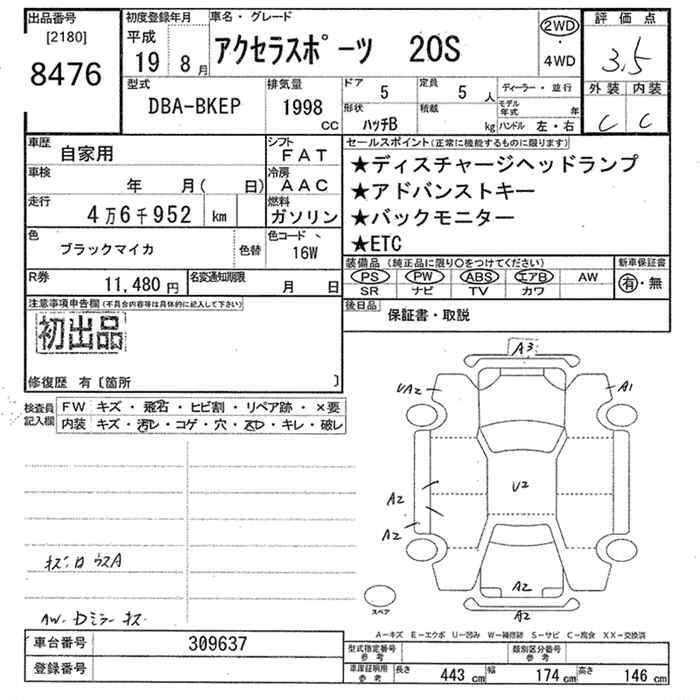 出品番号
[2180]
8476
初度登録年月
平成
19 8月
車名・グレード
アクセラスポーツ 20S
2WD
・
4WD
評価点
3.5
外装 内装
C C
型式
DBA-BKEP
排気量
1998
CC
ドア
5
定員
5 人
形状
ハッチB
積載
kg
ディーラー・並行
モデル年式 年
ハンドル 左・右
車歴
自家用
シフト
FAT
車検
年 月( 日)
冷房
AAC
走行
4万6千952 km
燃料
ガソリン
色
ブラックマイカ
色替
色コード
16W
R券
11,480円
名変通知期限
月 日
セールスポイント(正常に機能するものに限ります)
★ディスチャージヘッドランプ
★アドバンストキー
★バックモニター
★ETC
装備品(純正品に限り○をつけてください)
PS PW ABS エアB AW
SR ナビ TV カワ
新車保証書
有・無
後日品
保証書・取説
注意事項申告欄(不具合内容等は具体的に記入して下さい)
初出品
修復歴 有〔箇所 〕
検査員記入欄
FW キズ・飛石・ヒビ割・リペア跡・×要
内装 キズ・汚レ・コゲ・穴・スレ・キレ・破レ
A3
UA2
A1
A2
A2
U2
A2
A2
スペア
AW・Dミラーキズ
A―キズ E―エクボ U―凹み W―補修跡 S―サビ C―腐食 XX―交換済
車台番号
309637
登録番号
型式指定番号
参考
類別区分番号
参考
車庫証明用
参考
長さ 443 cm
幅 174 cm
高さ 146 cm